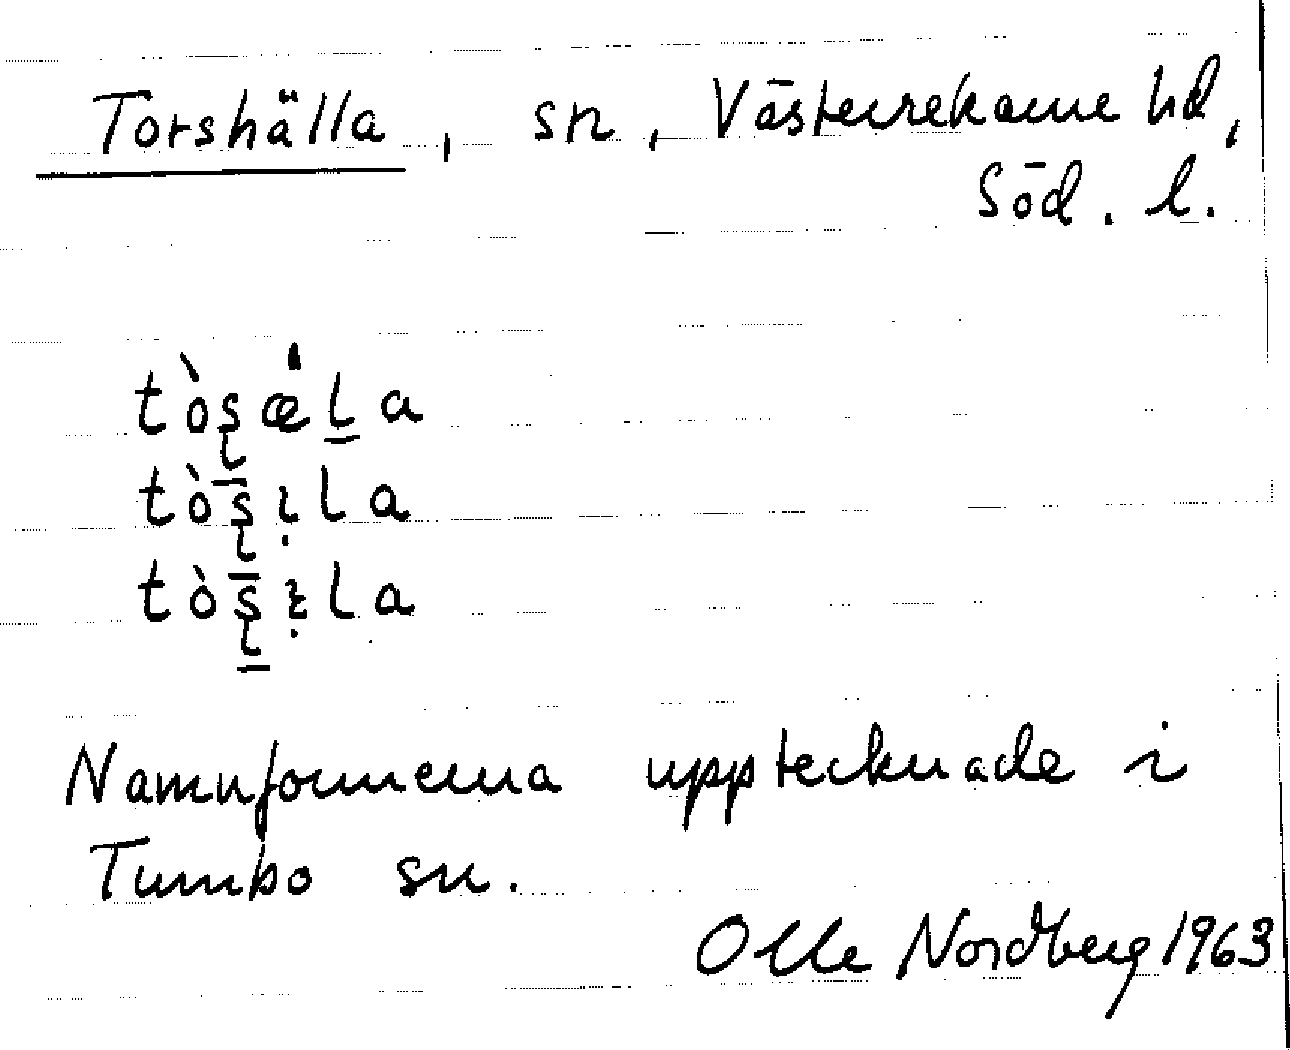 Torshälla, sn, Västerrekarne hd,
Söd. l.
tòʂæ̀l̠a
tòʂ̄ɩ̣la
Namnformerna upptecknade i
Tumbo sn.
Olle Nordberg 1963